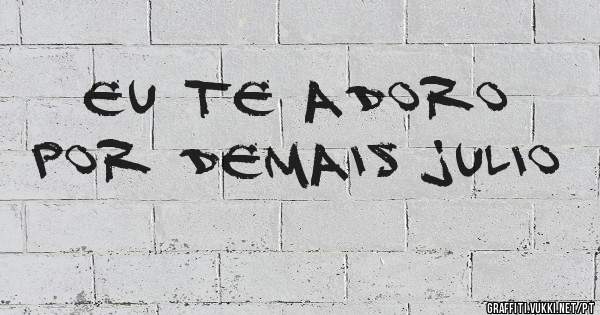 EU TE ADORO
POR DEMAIS JULIO
GRAFFITI.YUKKI.NET/PT